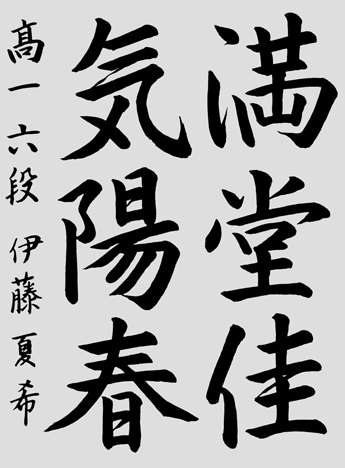 満堂佳
気陽春
高一六段 伊藤夏希